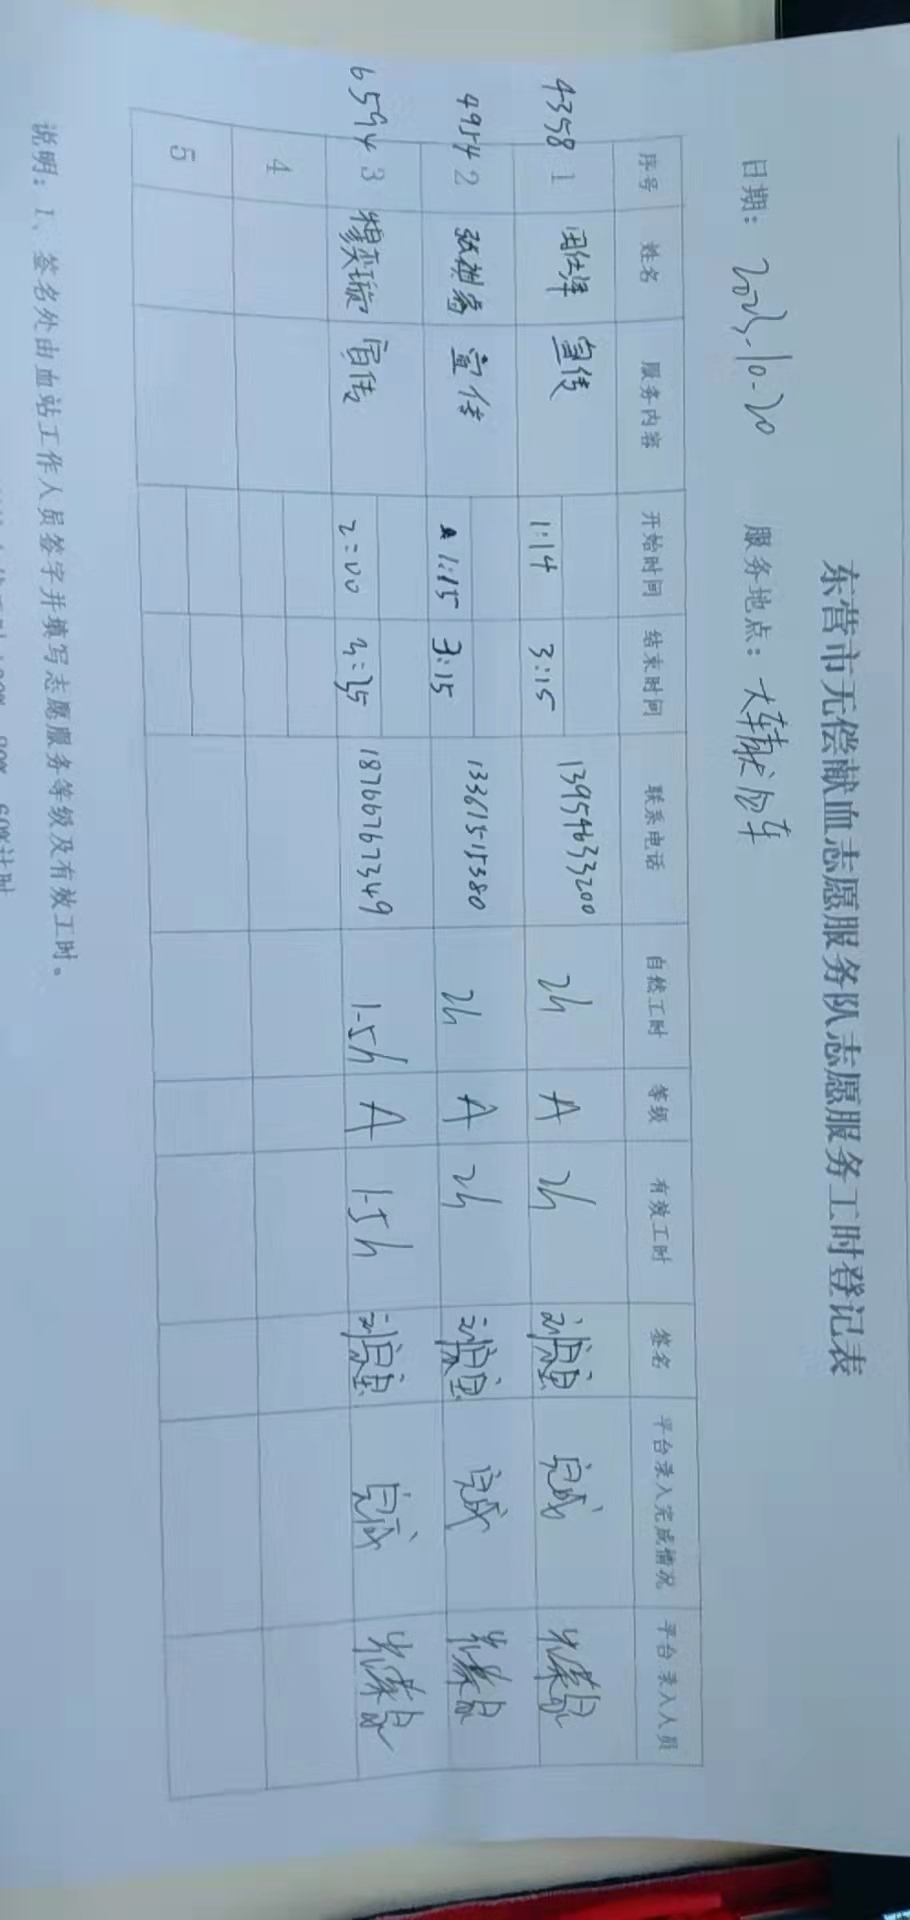 东营市无偿献血志愿服务队志愿服务工时登记表
日期: 2023-10-20 服务地点:
序号 姓名 服务内容 开始时间 结束时间 联系电话 自然工时 等级 有效工时 签名 平台录入完成情况 平台录入人员
4358 1 宣传 1:14 3:15 13954633200 2h A 2h 完成
4954 2 宣传 1:15 3:15 13361515380 2h A 2h 完成
6594 3 穆奕璇 宣传 2:00 3:35 18766767349 1.5h A 1.5h 完成
4
5
说明: 1、签名处由血站工作人员签字并填写志愿服务等级及有效工时。